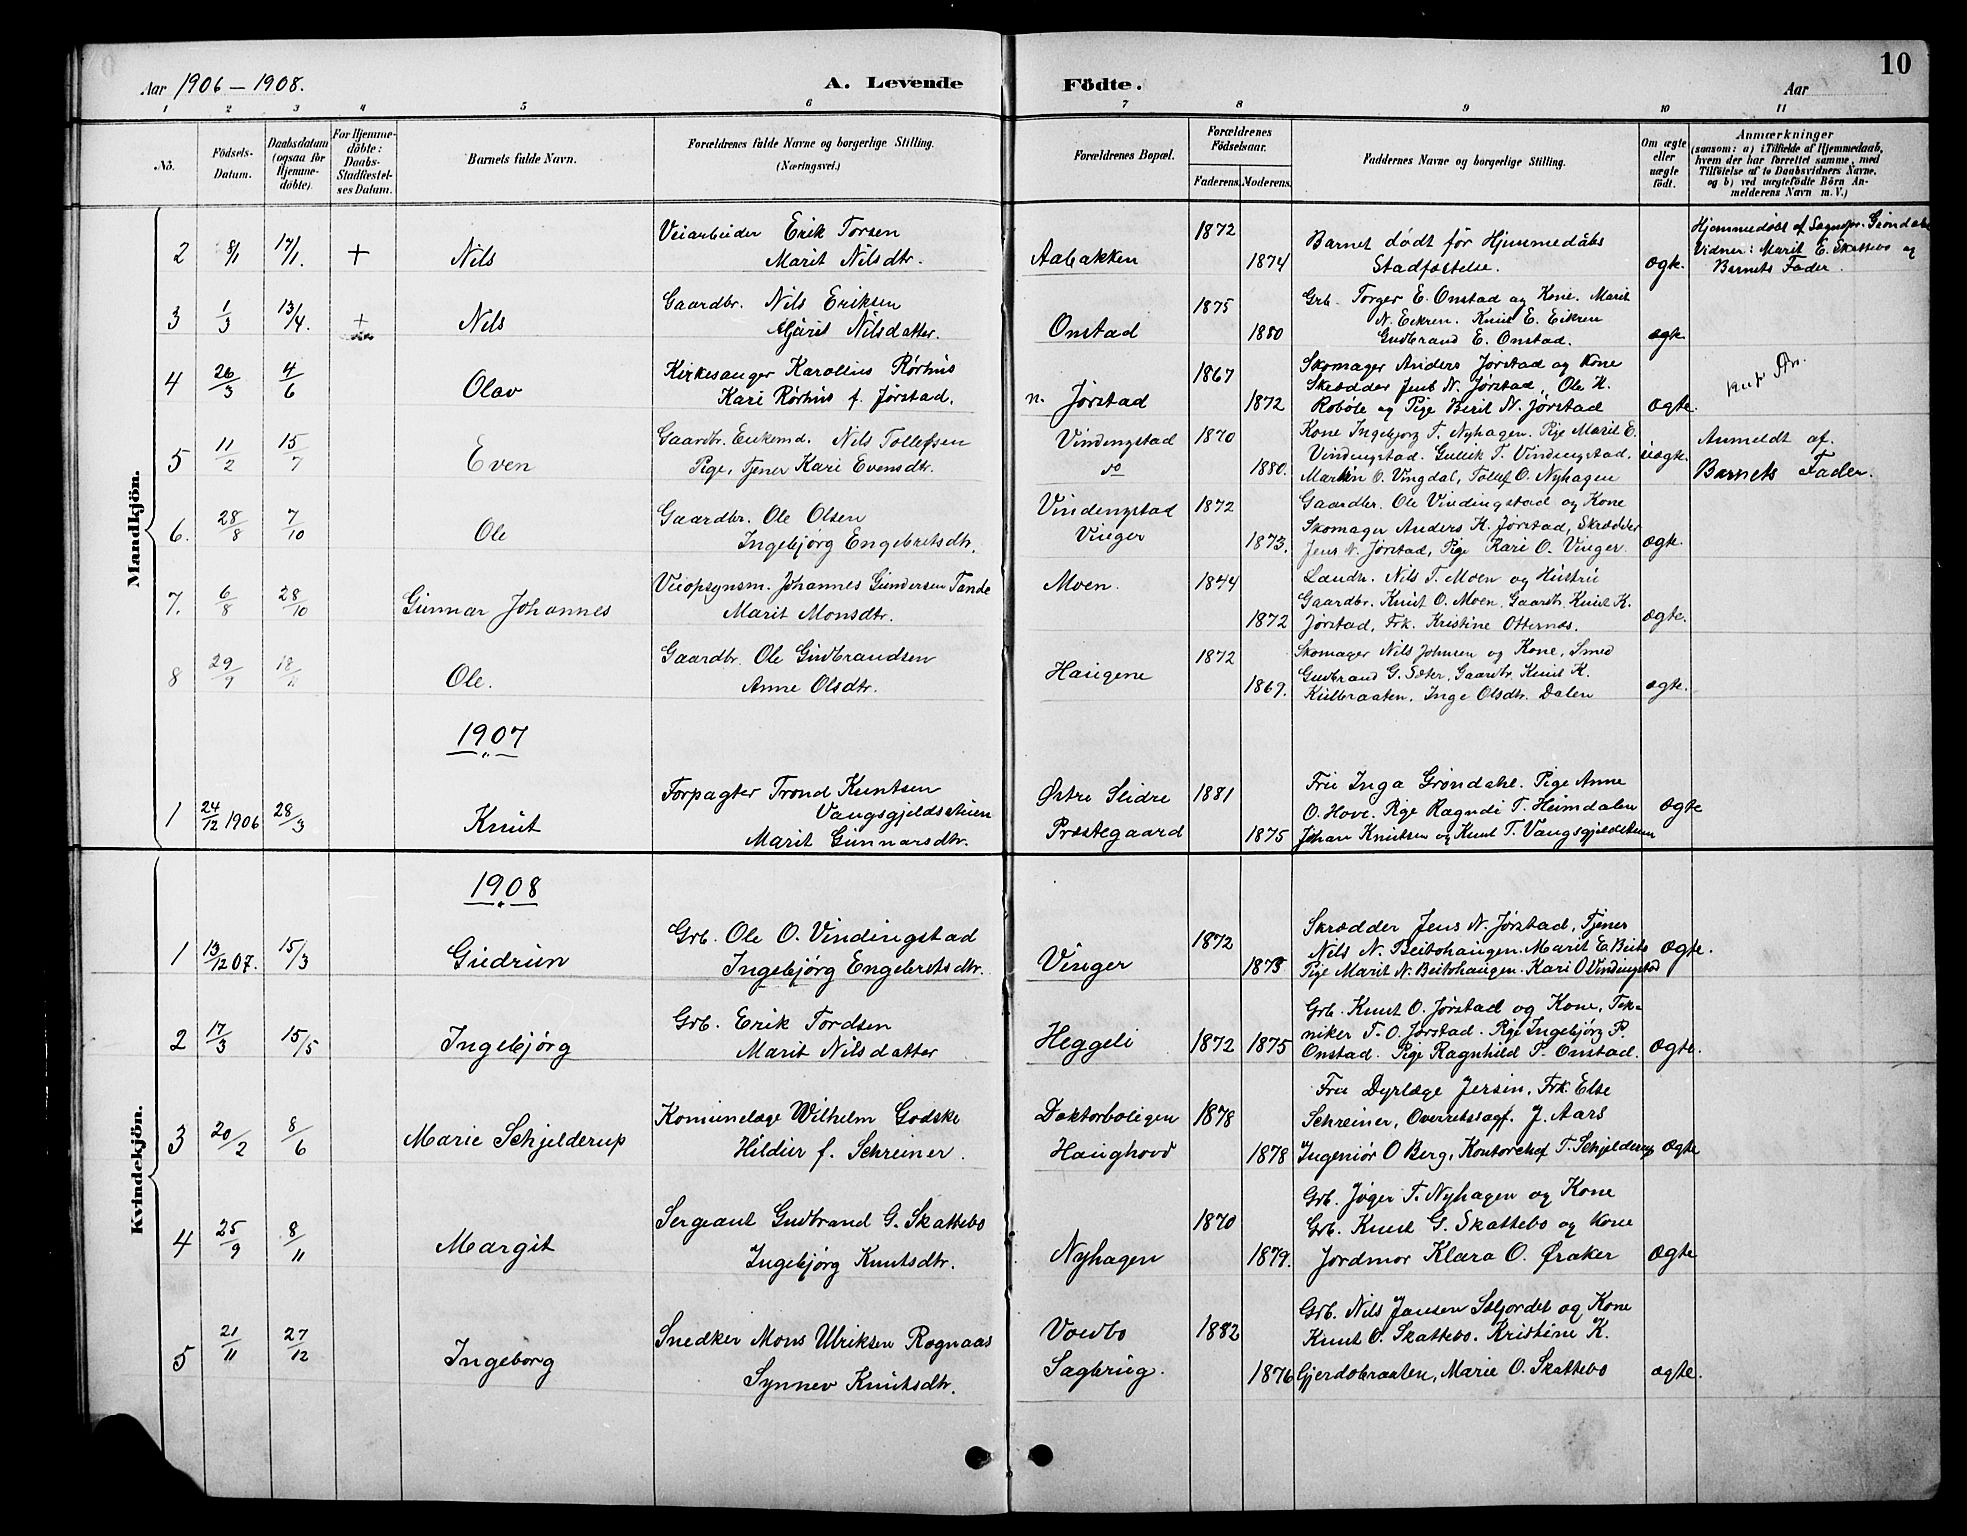 10
Aar 1906 – 1908.
A. Levende Födte.
Aar
1 2 3 4 5 6 7 8 9 10 11
No.
Födsels-Datum.
Daabsdatum (ogsaa for Hjemme-döbte).
For Hjemme-döbte: Daabs-Stadfestel-ses Datum.
Barnets fulde Navn.
Forældrenes fulde Navne og borgerlige Stilling.
(Næringsvei.)
Forældrenes Bopæl.
Forældrenes Födselsaar.
Faderens. Moderens.
Faddernes Navne og borgerlige Stilling.
Om ægte eller uægte födt.
Anmærkninger
(saasom: a) i Tilfælde af Hjemmedaab,
hvem der har forrettet samme, med
Tilföielse af to Daabsvidners Navne,
og b) ved uægtefödte Börn An-
melderens Navn m. V.)
Mandkjön.
2 8/1 17/1. + Nils
Veiarbeider Erik Torsen
Marit Nilsdtr.
Aabakken
1872
1874
Barnet dødt før Hjemmedåbs
Stadfæstelse.
ægte.
Hjemmedøbt af Sognepr. Grøndahl
Vidner: Marit E. Skattebo og
Barnets Fader.
3 1/3 13/4. + Nils
Gaardbr. Nils Eriksen
Marit Nilsdatter.
Onstad
1875
1880
Grb. Torger E. Onstad og Kone. Marit
N. Eikren. Knut E. Eikren
Gudbrand E. Onstad.
ægte
4 26/3 4/6 Olav
Kirkesanger Karolius Rørhus
Kari Rørhus f. Jørstad.
n. Jørstad
1867
1872
Skomager Anders Jørstad og Kone
Skrædder Jens N. Jørstad, Ole H.
Robøle og Pige Berit N. Jørstad
ægte.
5 11/2 15/7 Even
Gaardbr. Enkemd. Nils Tollefsen
Pige, Tjener Kari Evensdtr.
Vindingstad
do
1870
1880.
Kone Ingebjorg T. Nyhagen. Pige Marit E.
Vindingstad. Gullik T. Vindingstad.
Martin O. Vingdal, Tollef O. Nyhagen
uægte.
Anmeldt af.
Barnets Fader.
6. 28/8 7/10 Ole
Gaardbr. Ole Olsen
Ingebjorg Engebretsdtr.
Vindingstad
Vinger
1872
1873.
Gaardbr. Ole Vindingstad og Kone
Skomager Anders K. Jørstad, Skrædder
Jens N. Jørstad, Pige Kari O. Vinger.
ægte.
7. 6/8 28/10 Gunnar Johannes
Veiopsynsm. Johannes Gundersen Tande
Marit Monsdtr.
Moen.
1844
1872
Landh. Nils T. Moen og Hustru
Gaardbr. Knut O. Moen, Gaardbr. Knut K.
Jørstad, Frk. Kristine Otternæs.
ægte.
8 29/9 18/11 Ole.
Gaardbr. Ole Gudbrandsen
Anne Olsdtr.
Haugene
1872
1869.
Skomager Nils Johnsen og Kone, Smed
Gudbrand G. Sæter, Gaardbr. Knut K.
Kulbraaten, Inge Olsdtr. Dalen
ægte.
1907
1 24/12 1906 28/3 Knut
Forpagter Trond Knutsen
Vangsgjeldsstuen
Marit Gunnarsdtr.
Østre Slidre
Præstegaard
1881
1875
Fru Inga Grøndahl. Pige Anne
O. Hove. Pige Ragndi T. Heimdalen
Johan Knutsen og Knut T. Vangsgjeldstuen
ægte
Kvindekjön.
1908
1 13/12 07. 15/3 Gudrun
Grb. Ole O. Vindingstad
Ingebjørg Engebretsdtr.
Vinger
1872
1873
Skrædder Jens N. Jørstad, Tjener
Nils N. Beitohaugen. Marit E. Beito
Pige Marit N. Beitohaugen. Kari O Vindingstad
ægte.
2 17/3 15/5 Ingebjörg
Grb. Erik Tordsen
Marit Nilsdatter
Heggeli
1872 1875
Grb. Knut O. Jørstad og Kone, Tek-
niker T. O. Jørstad. Pige Ingebjörg P.
Onstad. Pige Ragnhild P. Onstad.
ægte.
3 20/2 8/6 Marie Schjelderup
Komunelæge Wilhelm Godske
Hildur f. Schreiner.
Doktorboligen
Haughovd
1878
1878
Fru Dyrlæge Jersin, Frk. Else
Schreiner, Overretssagf. J. Aars
Ingeniör O Berg, Kontorchef T. Schjelderup
ægte
4 25/9 8/11 Margit
Sergeant Gudbrand G. Skattebo
Ingebjørg Knutsdtr.
Nyhagen
1870
1879.
Grb. Jøger T. Nyhagen og Kone
Grb. Knut G. Skattebo og Kone
Jordmor Klara O. Øraker
ægte
5 21/11 27/12 Ingeborg
Snedker Mons Ulriksen Rognaas
Synnev Knutsdtr.
Voldbo
Sagbrug.
1882
1876
Grb. Nils Jansen Seljordet og Kone
Knut O. Skattebo. Kristine K.
Gjerdebraaten, Marie O. Skattebo
ægte.